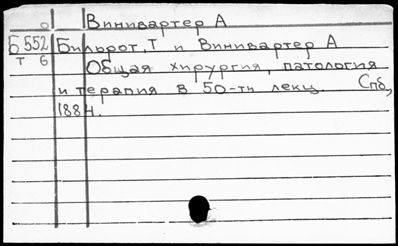 о Винивартер А
Б 552 Бильрот, Т и Винивартер А
т 6 Общая хирургия, патология
и терапия в 50-ти лекц. Спб,
1884.